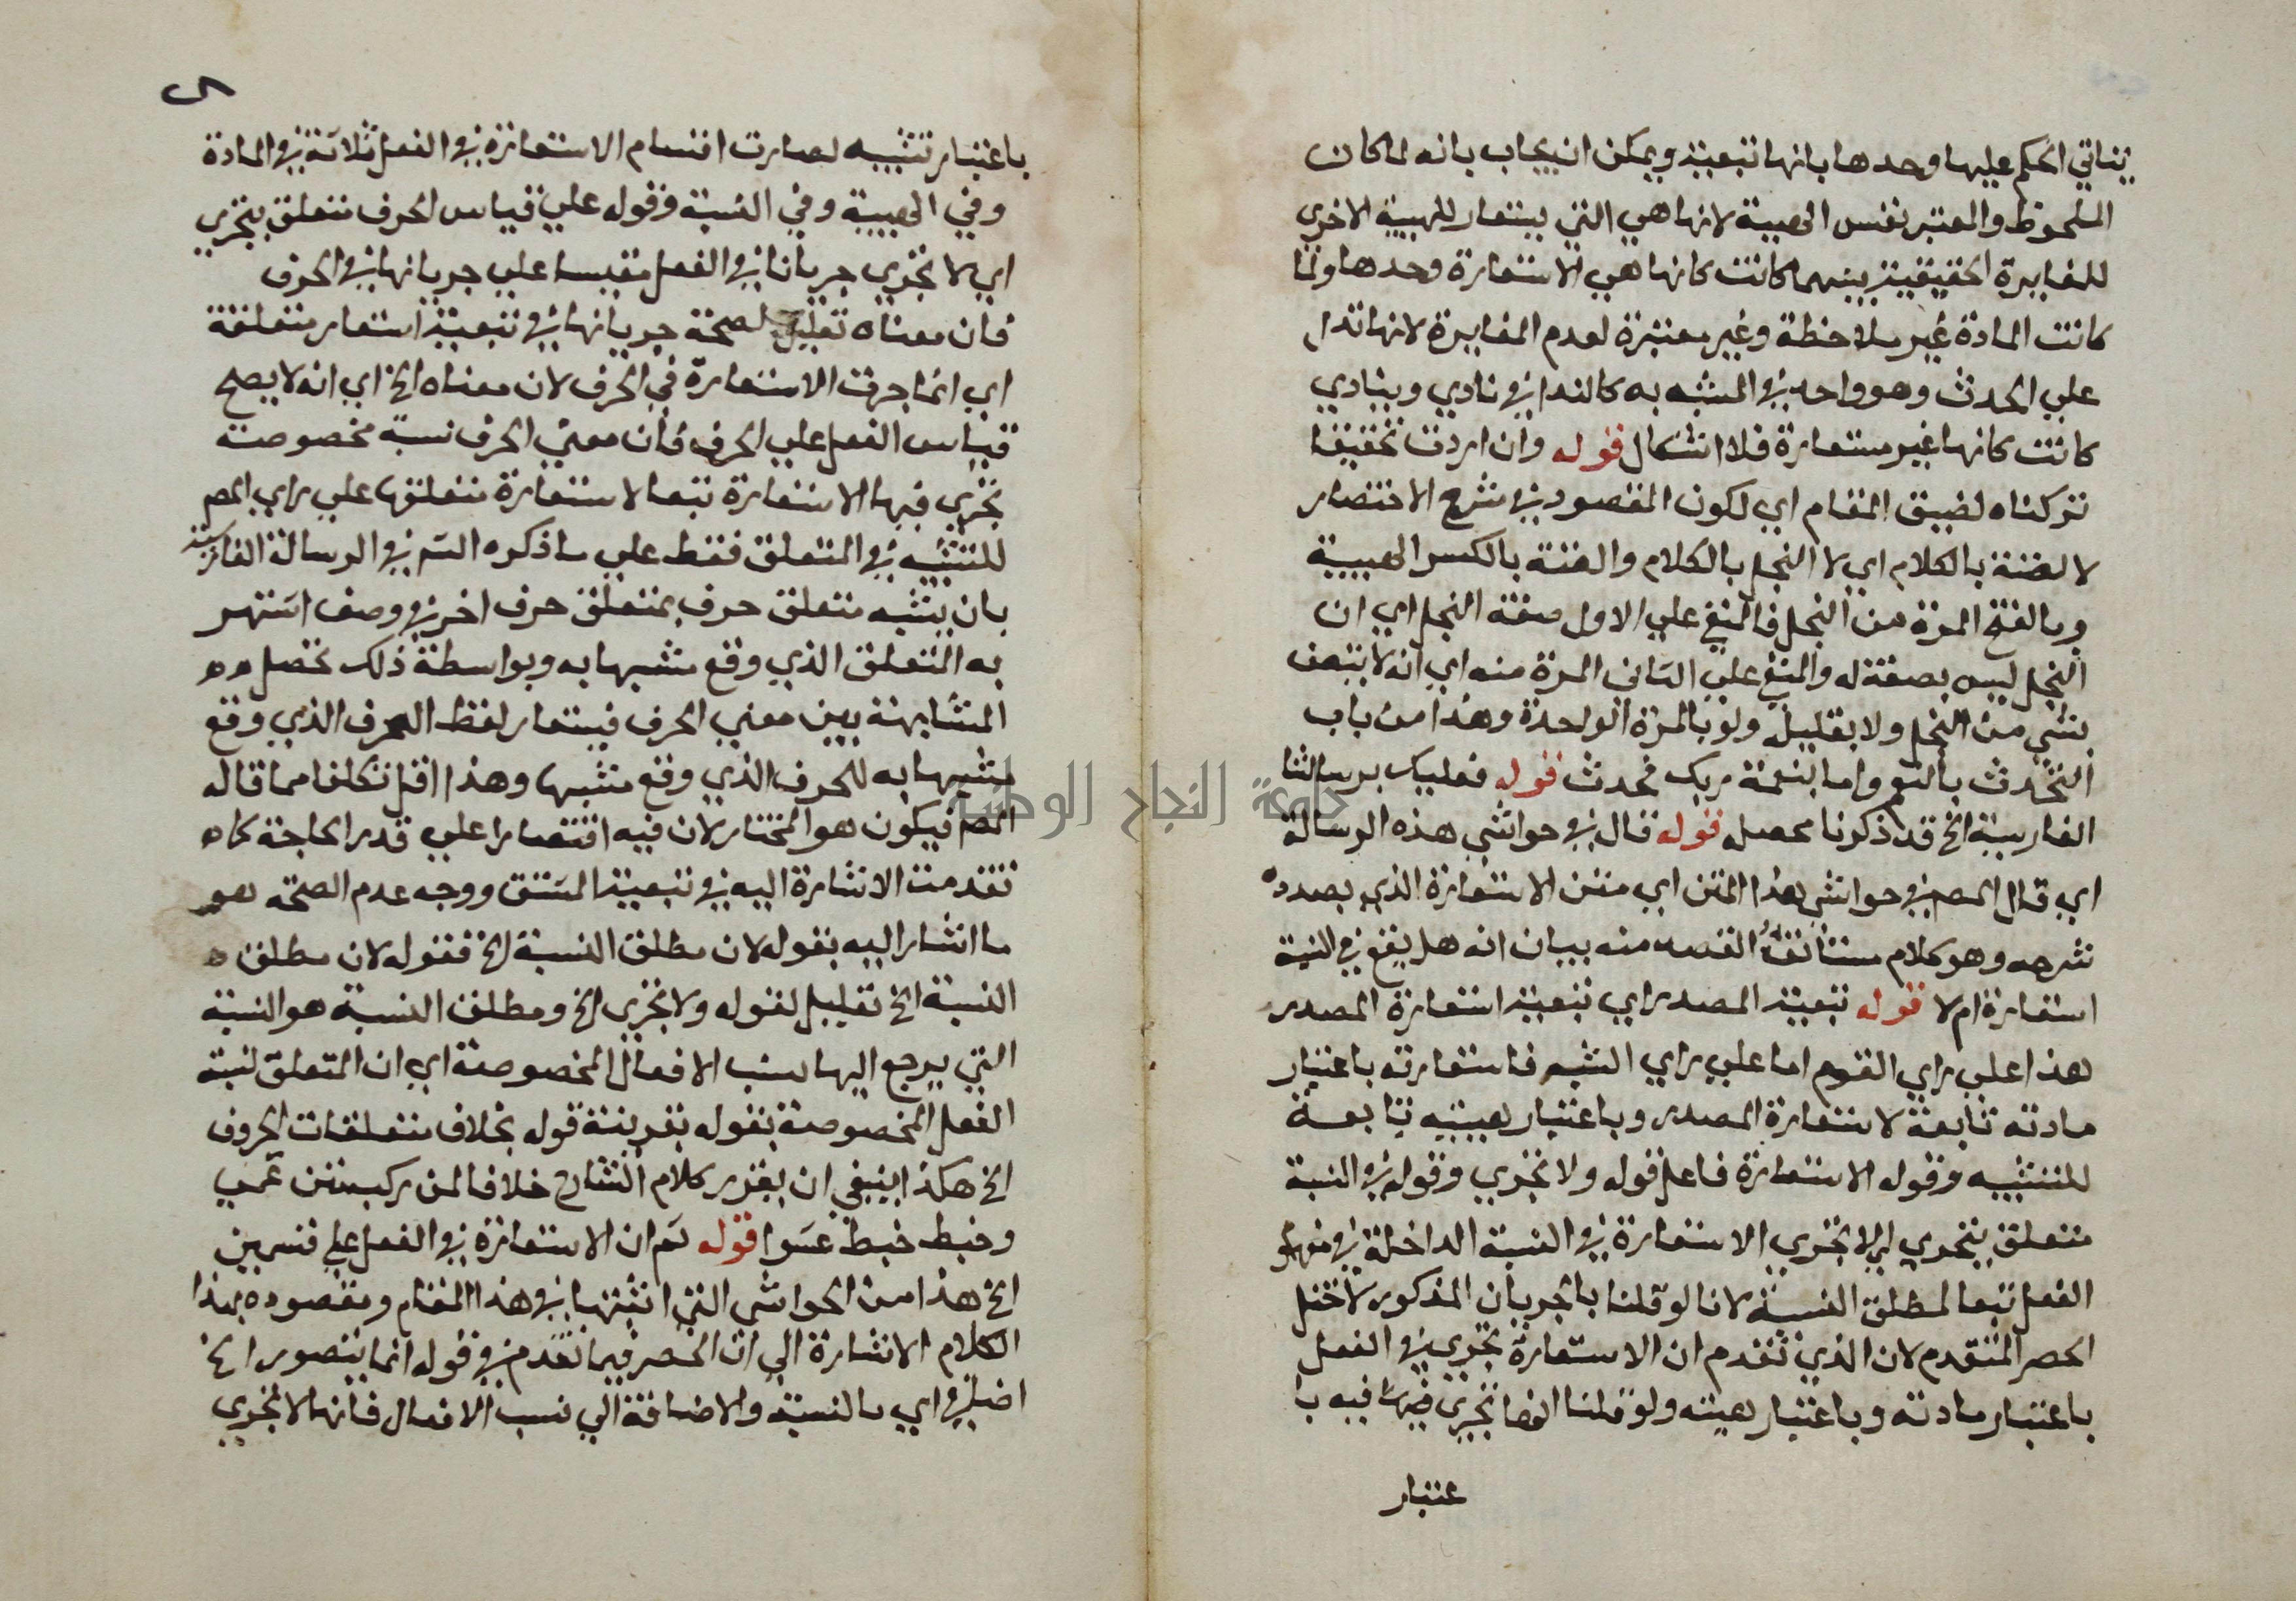 يتاتي الحكم عليها وحدها بانها تبعية ويمكن ان يجاب بانه لما كان
الملحوظ والمعتبر نفس الهيية لانها هي التي يستعار للهيية الاخرى
للمغايرة الحقيقية بينهما كانت كانها هي الاستعارة وحدها ولما
كانت المادة غير ملاحظة وغير معتبرة لعدم المغايرة لانها تدل
علي الحدث وهو واحد في المشبه به كالندا في نادي وينادي
كانت كانها غير مستعارة فلا اشكال قوله وان اردت تحقيقا
تركناه لضيق المقام اي لكون المقصود في شرح الاختصار
لا لضنة بالكلام اي لا البخل بالكلام والضنة بالكسر الهيية
وبالفتح المرة من البخل فالمنفي علي الاول صفة البخل اي ان
البخل ليس بصفة له والمنفي علي الثاني المرة منه اي انه لا يتصف
بشي من البخل ولا بقليله ولو بالمرة الواحدة وهذا من باب
التحدث بالنعم واما بنعمة ربك فحدث قوله فعليك برسالتنا
الفارسية الخ قد ذكرنا محصله قوله قال في حواشي هذه الرسالة
اي قال المصم في حواشي هذا المتن اي متن الاستعارة الذي بصدده
شرحه وهو كلام مستأنف القصد منه بيان انه هل يقع في النسبة
استعارة ام لا قوله تبعية المصدر اي تبعية استعارة المصدر
هذا علي راي القوم اما علي راي الشم فاستعارته باعتبار
مادته تابعة لاستعارة المصدر وباعتبار هييته تابعة
للتشبيه وقوله الاستعارة فاعل قوله ولا تجري وقوله في النسبة
متعلق بتجري اي لا تجري الاستعارة في النسبة الداخلة في مفهوم
الفعل تبعا لمطلق النسبة لانا لو قلنا بالجريان المذكور لاختل
الحصر المتقدم لان الذي تقدم ان الاستعارة تجري في الفعل
باعتبار مادته وباعتبار هيته ولو قلنا انها تجري فيها فيه با
عتبار
باعتبار تشبيه لصارت اقسام الاستعارة في الفعل ثلاثة في المادة
وفي الهيية وفي النسبة وقوله علي قياس الحرف متعلق بتجري
اي لا تجري جريانا في الفعل مقيسا علي جريانها في الحرف
فان معناه تعليل لصحة جريانها في تبعية استعار متعلقة
اي انما جرت الاستعارة في الحرف لان معناه الخ اي انه لا يصح
قياس الفعل علي الحرف فان معني الحرف نسبة مخصوصة
تجري فيها الاستعارة تبعا لاستعارة متعلقها علي راي المصم
للتشبيه في المتعلق فقط علي ما ذكره الشم في الرسالة الفارسية
بان يشبه متعلق حرف بمتعلق حرف اخر في وصف اشتهر
به المتعلق الذي وقع مشبها به وبواسطة ذلك تحصل
المشابهة بين معني الحرف فيستعار لفظ الحرف الذي وقع
مشبها به للحرف الذي وقع مشبها وهذا اقل تكلفا مما قاله
المصم فيكون هو المختار لان فيه اقتصارا علي قدر الحاجة كما
تقدمت الاشارة اليه في تبعية المشتق ووجه عدم الصحة هو
ما اشار اليه بقوله لان مطلق النسبة الخ فقوله لان مطلق
النسبة الخ تعليل لقوله ولا تجري الخ ومطلق النسبة هو النسبة
التي يرجع اليها نسب الافعال المخصوصة اي ان المتعلق لنسبة
الفعل المخصوصة بقوله بقرينة قوله بخلاف متعلقات الحروف
الخ هكذا ينبغي ان يقرر كلام الشارح خلافا لمن ركب متن عمي
وخبط خبط عشوا قوله ثم ان الاستعارة في الفعل علي قسمين
الخ هذا من الحواشي التي اثبتها في هذا المقام ومقصوده بهذا
الكلام الاشارة الي ان الحصر فيما تقدم في قوله انما يتصور الخ
اضافي اي بالنسبة والاضافة الي نسب الافعال فانها لا تجري